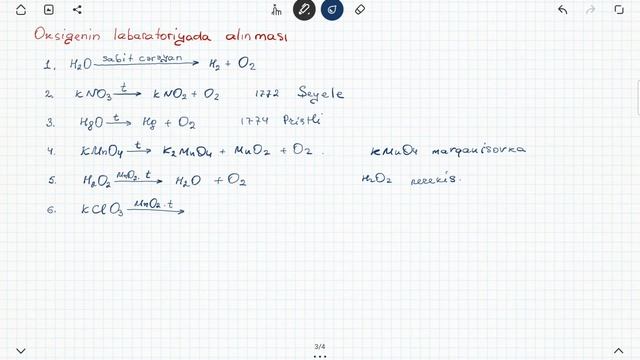 Oksigenin labaratoriyada alınması
1. H2O sabit cərəyan → H2 + O2
2. KNO3 t → KNO2 + O2 1772 Şeyele
3. HgO t → Hg + O2 1774 Pristli
4. KMnO4 t → K2MnO4 + MnO2 + O2. KMnO4 marqanisovka
5. H2O2 MnO2.t → H2O + O2 H2O2 perekis.
6. KClO3 MnO2.t →
3/4